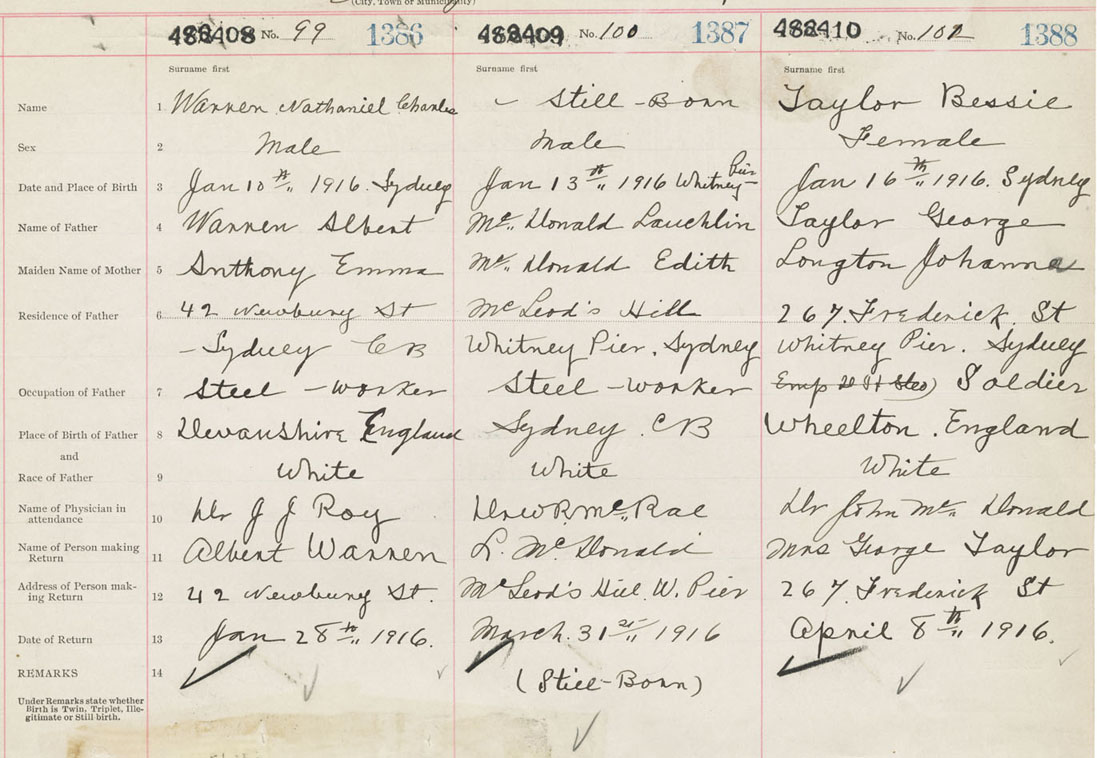 (City, Town or Municipality)
No. 99 1386
488409 No. 100 1387
488410 No. 102 1388
Surname first Surname first Surname first
Name 1 Warren Nathaniel Charles - Still-Born Taylor Bessie
Sex 2 Male Male Female
Date and Place of Birth 3 Jan 10th 1916. Sydney Jan 13th 1916 Whitney Pier Jan 16th 1916. Sydney
Name of Father 4 Warren Albert Mc Donald Lauchlin Taylor George
Maiden Name of Mother 5 Anthony Emma Mc Donald Edith Longton Johanna
Residence of Father 6 42 Newbury St McLeod's Hill 267. Frederick. St
- Sydney CB Whitney Pier. Sydney Whitney Pier. Sydney
Occupation of Father 7 Steel-worker Steel-worker Emp Soldier
Place of Birth of Father 8 Devanshire England Sydney. CB Wheelton. England
and
Race of Father 9 White White White
Name of Physician in
attendance 10 Dr J J Roy Drew R. McRae Dr John Mc Donald
Name of Person making
Return 11 Albert Warren L. McDonald Mrs George Taylor
Address of Person mak-
ing Return 12 42 Newbury St. McLeod's Hill. W. Pier 267. Frederick St
Date of Return 13 Jan 28th 1916. March. 31st 1916 April 8th 1916.
REMARKS 14 (Still-Born)
Under Remarks state whether
Birth is Twin, Triplet, Ille-
gitimate or Still birth.